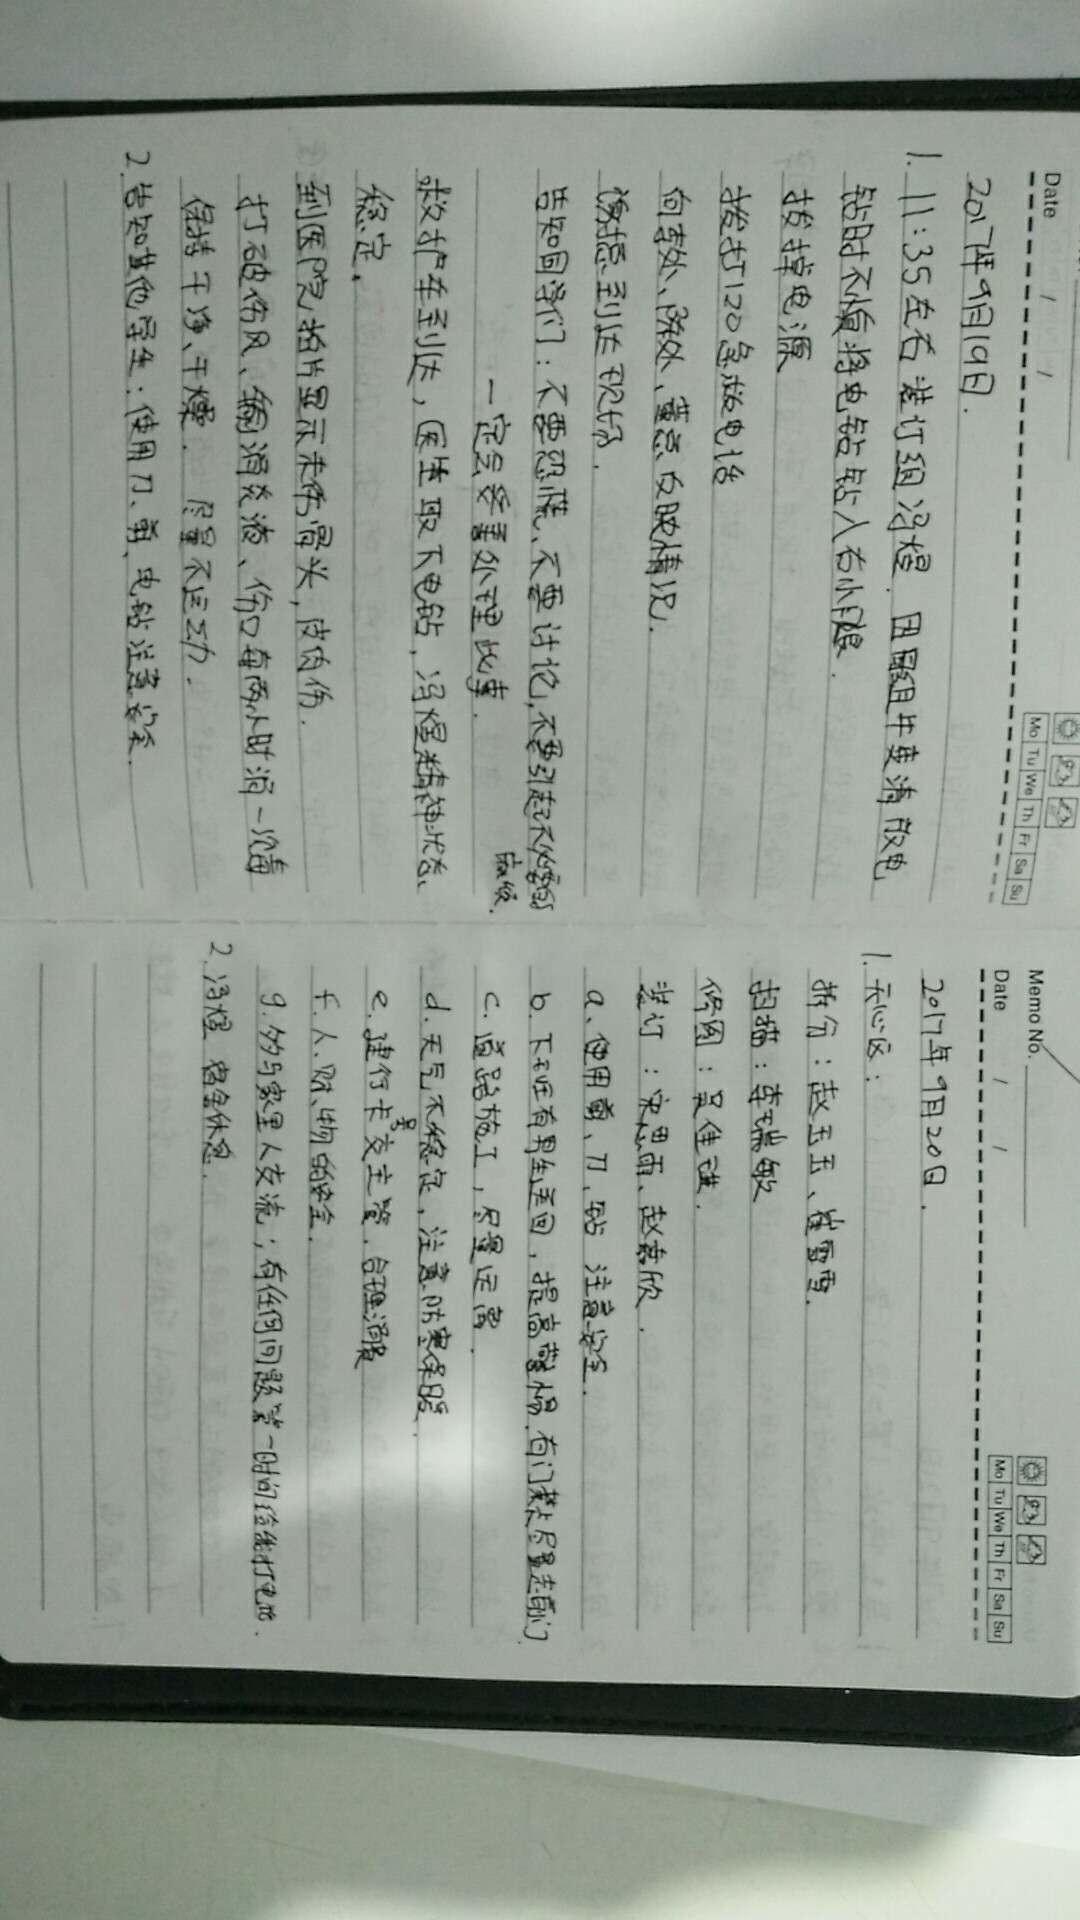 Date / /
Mo Tu We Th Fr Sa Su
2017年9月19日.
1. 11:35左右 装订组冯煜. 因跟组井要清散电
钻时不慎将电钻钻入右小腿.
拔掉电源
拨打120急救电话
向李处、陈处、董总反映情况.
总到达现场.
告知同学们:不要恐慌、不要讨论,不要引起不必要的
麻烦.
一定会妥善处理此事.
救护车到达,医生取下电钻,冯煜精神状态、
稳定.
到医院,拍片显示未伤骨头,皮肉伤.
打破伤风、输消炎液、伤口每两小时消一次毒
保持干净、干燥. 尽量不运动.
2. 告知其他学生:使用刀、剪、电钻注意安全.
Memo No.
Date / /
Mo Tu We Th Fr Sa Su
2017年9月20日.
1. 天心区:
拆分:赵玉玉、崔雪雪.
扫描:李瑞敏
修图:吴佳进.
装订:宋思雨、赵嘉欣.
a. 使用剪、刀、钻 注意安全.
b. 下班有男生送回,提高警惕.有门禁尽量走前门
c. 道路施工,尽量远离.
d. 天气不稳定,注意防寒保暖.
e. 建行卡号交主管.合理消费
f. 人、财、物的安全.
g. 多与家里人交流;有任何问题第一时间给我打电话.
2. 冯煜 宿舍休息.